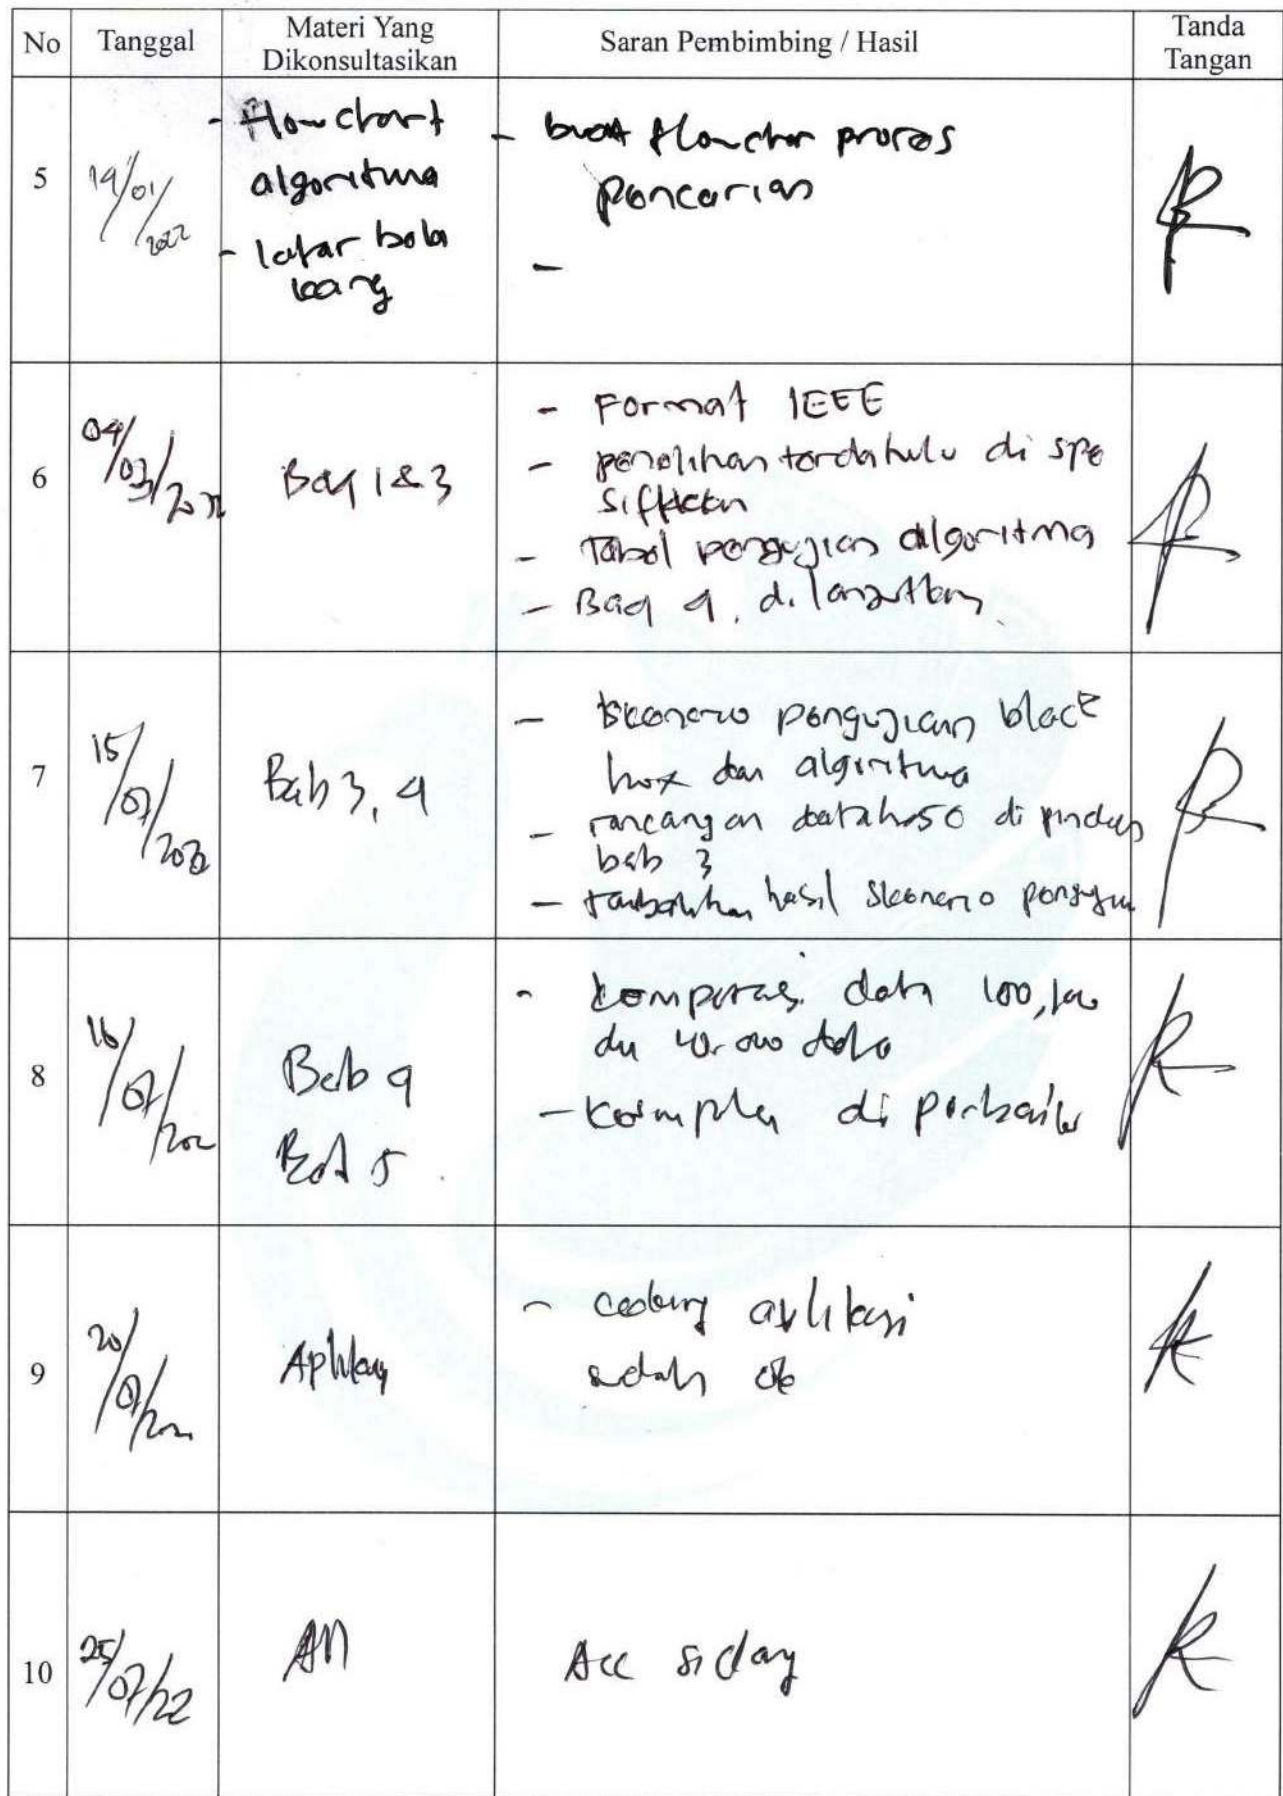 No Tanggal Materi Yang Dikonsultasikan Saran Pembimbing / Hasil Tanda Tangan
5 19/01/2022
- Flowchart
algoritma
- latar bela
kang
- buat flowchar proses
pencarian
-
6 04/03/2022
Bag 1 & 3
- Format IEEE
- penelitian terdahulu di spe
sifikkan
- Tabel pengujian algoritma
- Bag 4, dilanjutkan
7 15/07/2022
Bab 3, 4
- skenario pengujian black
box dan algoritma
- rancangan database di pindah
bab 3
- tambahkan hasil skenario pengujian
8 16/07/202
Bab 4
Bab 5
- komparasi data 100,
data
- di perbaiki
9 20/07/202
Aplikasi
- coding aplikasi
sudah ok
10 25/07/22
All
Acc sidang